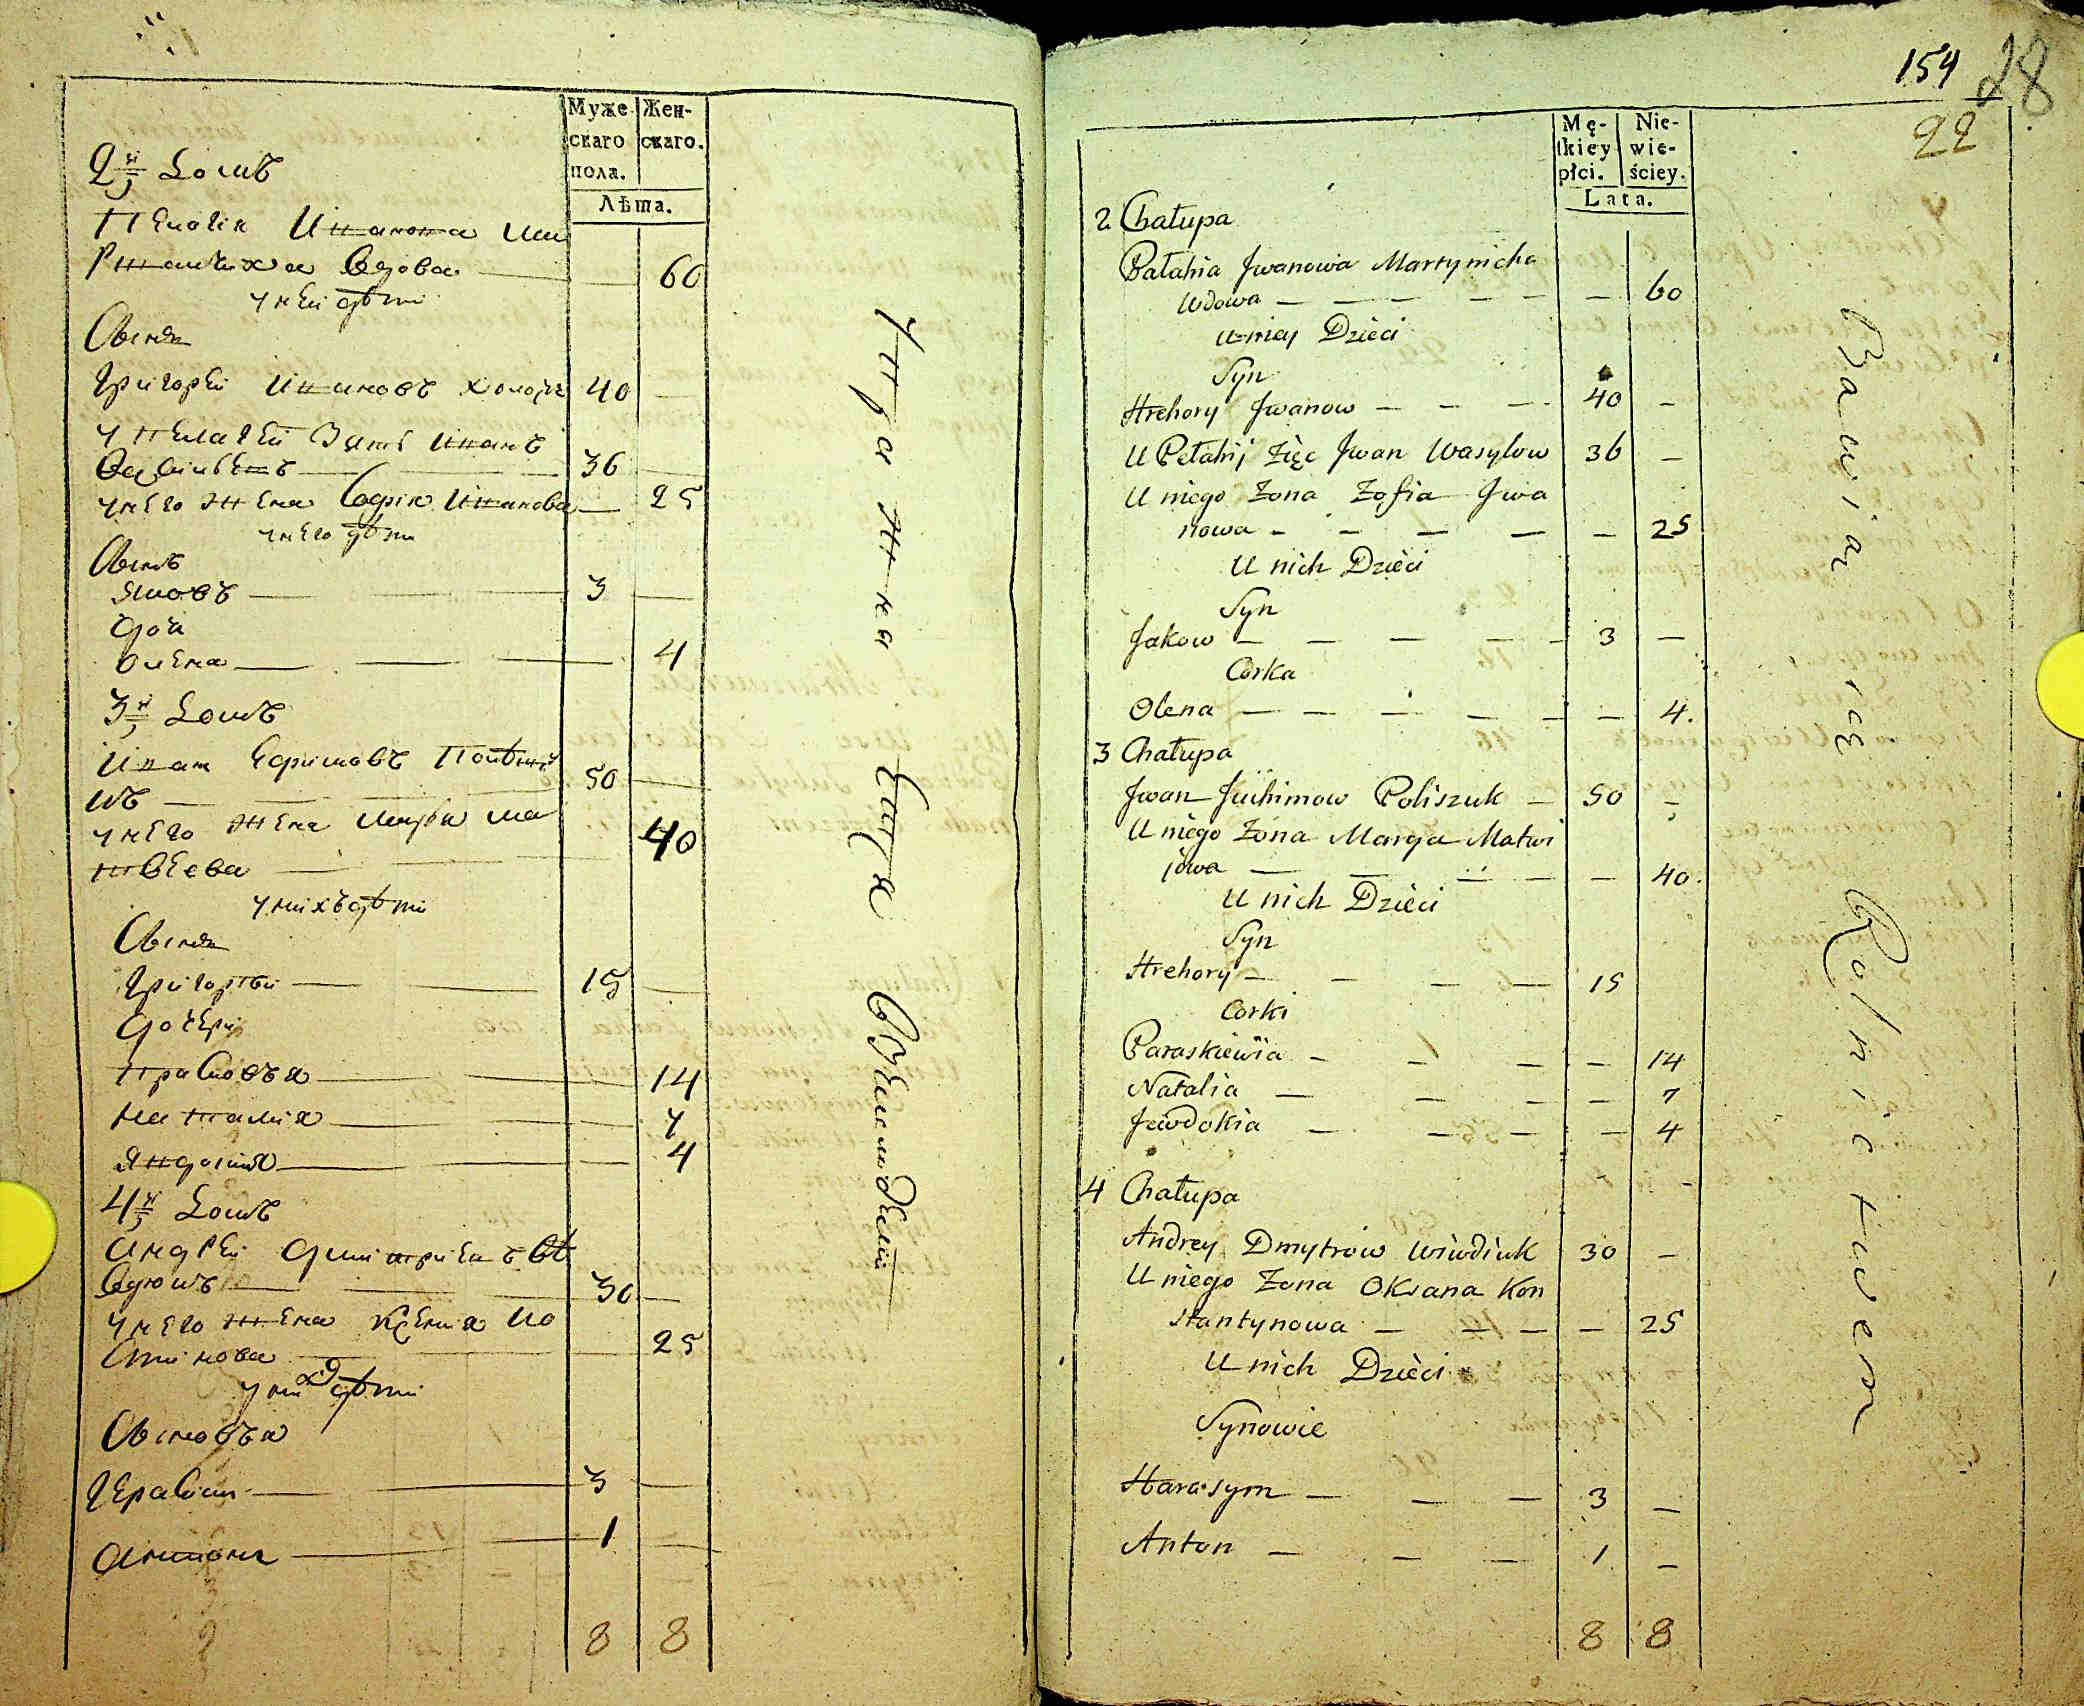 Муже- Жен-
скаго скаго.
пола.
Лѣта.
2й Домъ
Пелагія Иванова Ма
ртыничха вдова — — 60
у ней дѣти
Сынъ
Григорей Ивановъ холостъ 40 —
у Пелагеи Зять Иванъ
Васильевъ — — 36 —
у него Жена Софія Иванова — 25
у него дѣти
Сынъ
Яковъ — — 3 —
Дочь
Олена — — — 4
3й Домъ
Иван Ефимовъ Полѣщу
къ — — 50 —
у него Жена Марфа Ма
твѣева — — 40
у нихъ дѣти
Сынъ
Григорѣй — — 15 —
Дочери
Прасковѣя — — 14
Наталия — — 7
Явдокия — — 4
4й Домъ
Андрей Дмитриевъ Вѣ
вдюкъ — — — 30 —
у него Жена Ксения Ко
стинова — — 25
у них дѣти
Сыновья
Герасим — — 3 —
Антонъ — — 1 —
8 8
Упражнен
Въ земледелии
154 28
22
Mę- Nie-
skiey wie-
płci. ściey.
Lata.
2 Chałupa
Pałahia Jwanowa Martynicha
Wdowa — — — — — — 60
u niey Dzieci
Syn
Hrehory Jwanow — — — 40 —
U Pełahij Zięc Jwan Wasylow 36 —
U niego Zona Zofia Jwa
nowa — — — — — 25
U nich Dzieci
Syn
Jakow — — — — — 3 —
Corka
Olena — — — — — — 4.
3 Chałupa
Jwan Juchimow Poliszuk — 50 —
U niego Zona Marya Matwi
jowa — — — — 40.
U nich Dzieci
Syn
Hrehory — — — — 15
Corki
Paraskiewia — — — — 14
Natalia — — — — 7
Jewdokia — — — — 4
4 Chałupa
Andrey Dmytrow Wiwdiuk 30 —
U niego Zona Oksana Kon
stantynowa — — — — 25
U nich Dzieci
Synowie
Harasym — — — 3 —
Anton — — — 1 —
8 8
Bawią się Rolnictwem